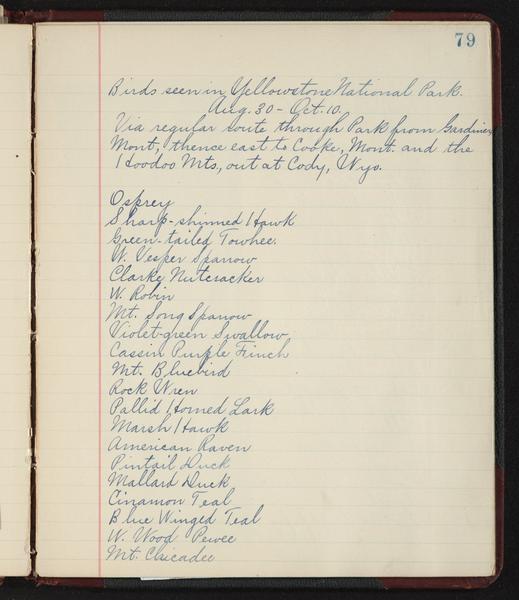 79
Birds seen in Yellowstone National Park.
Aug. 30 - Oct. 10.
Via regular route through Park from Gardiner,
Mont., thence east to Cooke, Mont. and the
Hoodoo Mts, out at Cody, Wyo.
Osprey
Sharp-shinned Hawk
Green-tailed Towhee.
W. Vesper Sparrow
Clarke Nutcracker
W. Robin
Mt. Song Sparrow
Violet-green Swallow
Cassin Purple Finch
Mt. Bluebird
Rock Wren
Pallid Horned Lark
Marsh Hawk
American Raven
Pintail Duck
Mallard Duck
Cinamon Teal
Blue Winged Teal
W. Wood Pewee
Mt. Chicadee